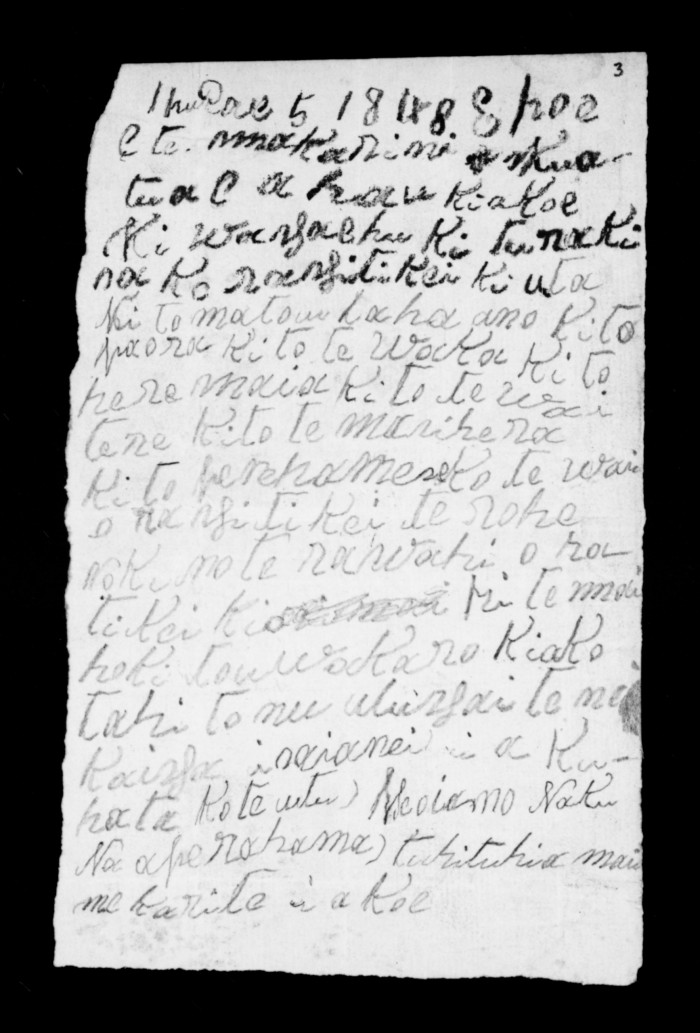 3
5 1848 E hoa
E te makarini
tua E a hau kiakoe
Ki wangaehu Ki turaki
na Ko rangitikei Ki uta
Ki to matou kaha ano Ki to
paora Ki to te waka Ki to
here maia Ki to te wai
tere Ki to te manihera
Ki to perehama Ko te wai
o rangitikei te rohe
noKi no te rawahi o ra
tikei Ki te mai
hoKi tou wakaro KiaKo
tahi to nu utungai te
Kainga inaianei i a Ku
hata Ko te utu) Heoiano NaKu
Na aperahama) tuhituhia mai
me Karite i a Koe